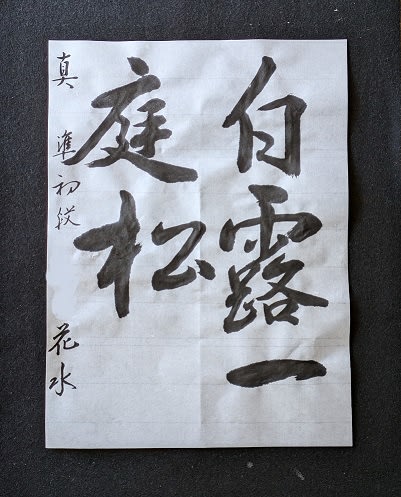 白露一
庭松
真 準初段 花水